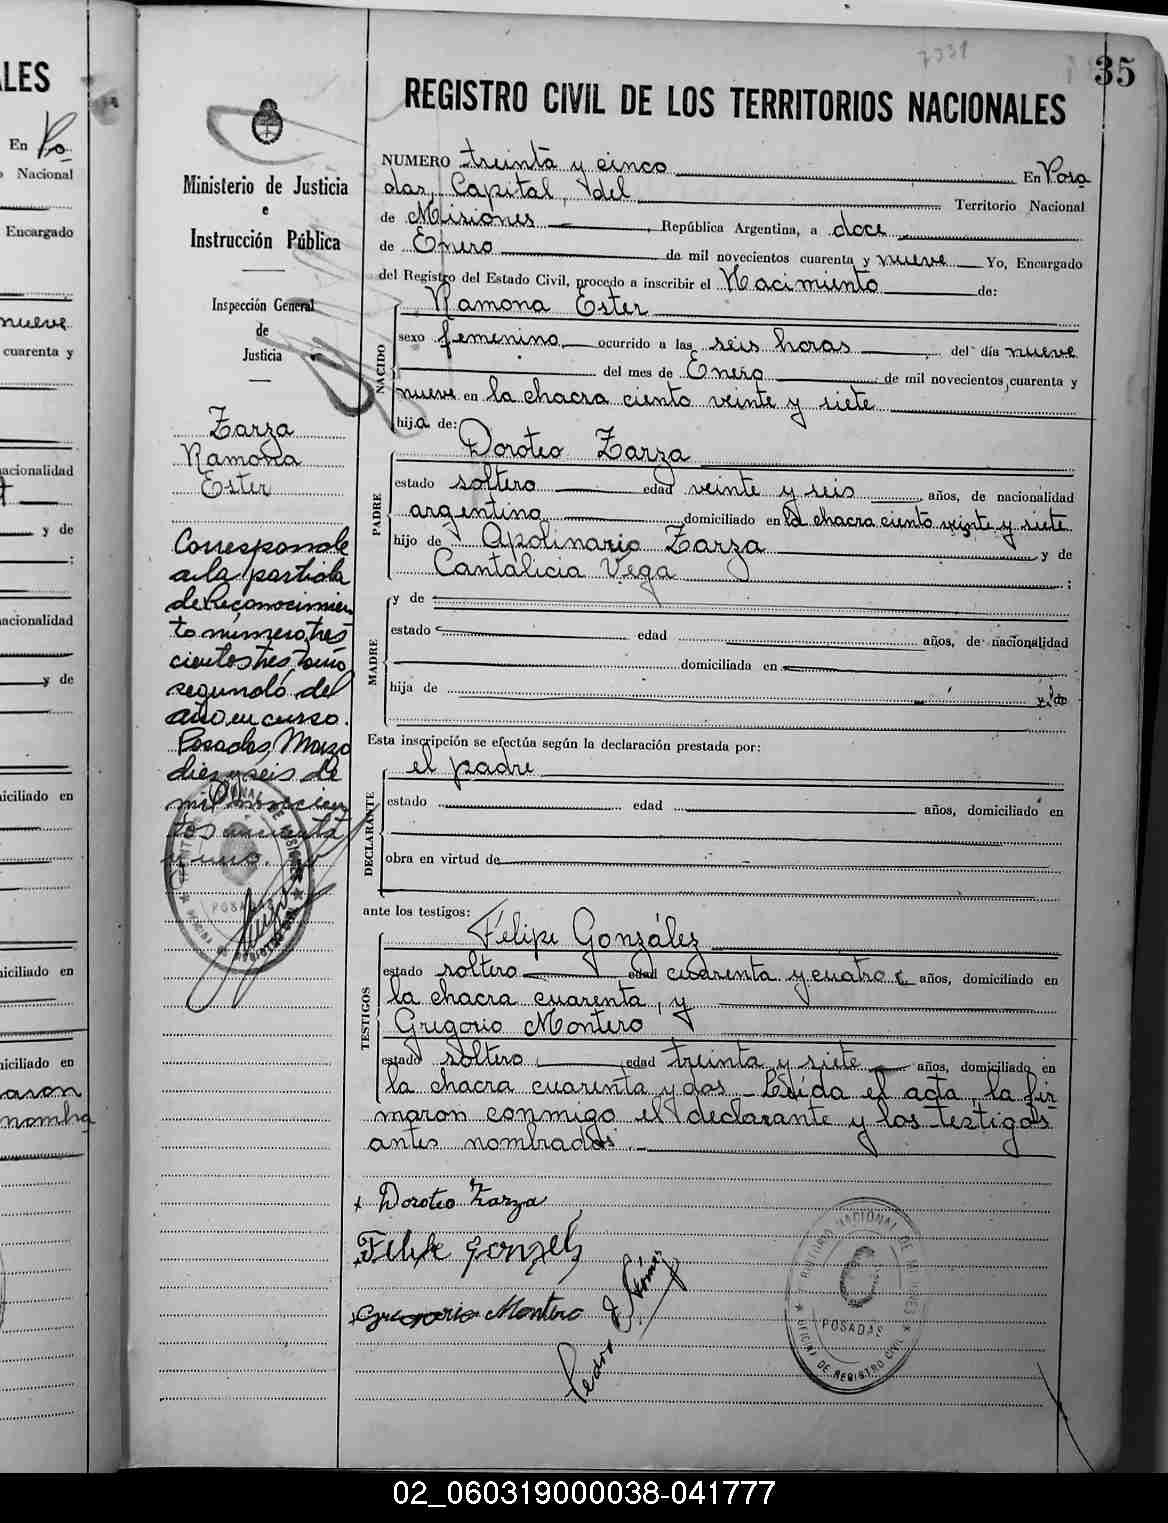 ALES
En Po
o Nacional
Encargado
nueve
cuarenta y
acionalidad
y de
acionalidad
y de
iciliado en
iciliado en
niciliado en
aron
nombra
7331
35
REGISTRO CIVIL DE LOS TERRITORIOS NACIONALES
Ministerio de Justicia
e
Instrucción Pública
Inspección General
de
Justicia
Zarza
Ramona
Ester
Corresponde
a la partida
de Reconocimien
to número tres
cientos tres, tomo
segundo del
año en curso.
Posadas, Marzo
diez y seis de
mil novecien
tos cincuenta
y uno.
NUMERO treinta y cinco En Posa
das, Capital, del Territorio Nacional
de Misiones, República Argentina, a doce
de Enero de mil novecientos cuarenta y nueve Yo, Encargado
del Registro del Estado Civil, procedo a inscribir el Nacimiento de:
NACIDO
Ramona Ester
sexo femenino ocurrido a las seis horas del día nueve
del mes de Enero de mil novecientos cuarenta y
nueve en la chacra ciento veinte y siete
hija de:
PADRE
Doroteo Zarza
estado soltero edad veinte y seis años, de nacionalidad
argentino domiciliado en la chacra ciento veinte y siete
hijo de Apolinario Zarza y de
Cantalicia Vega ;
MADRE
y de
estado edad años, de nacionalidad
domiciliada en
hija de y de
Esta inscripción se efectúa según la declaración prestada por:
DECLARANTE
el padre
estado edad años, domiciliado en
obra en virtud de
ante los testigos:
TESTIGOS
Felipe González
estado soltero edad cuarenta y cuatro años, domiciliado en
la chacra cuarenta, y
Gregorio Montero
estado soltero edad treinta y siete años, domiciliado en
la chacra cuarenta y dos. Leída el acta, la fir
maron conmigo el declarante y los testigos
antes nombrados.
Doroteo Zarza
Felipe Gonzales
Gregorio Montero
Pedro J. Gómez
TERRITORIO NACIONAL DE MISIONES
POSADAS
OFICINA DE REGISTRO CIVIL
02_060319000038-041777